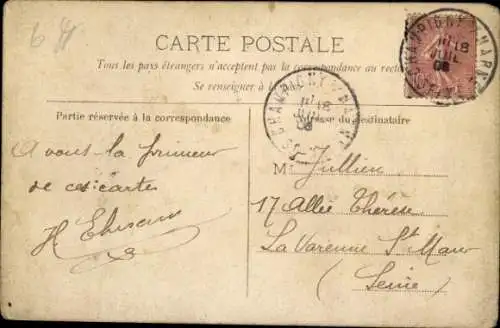 CARTE POSTALE
Tous les pays étrangers n'acceptent pas la correspondance au recto
Se renseigner à la
Partie réservée à la correspondance
Adresse du destinataire
CHAMPIGNY S MARNE
18
JUIL
08
CHAMPIGNY S MARNE
18
JUIL
08
A vous la primeur
de ces cartes
M Jullien
17 Allée Thérèse
La Varenne St Maur
(Seine)